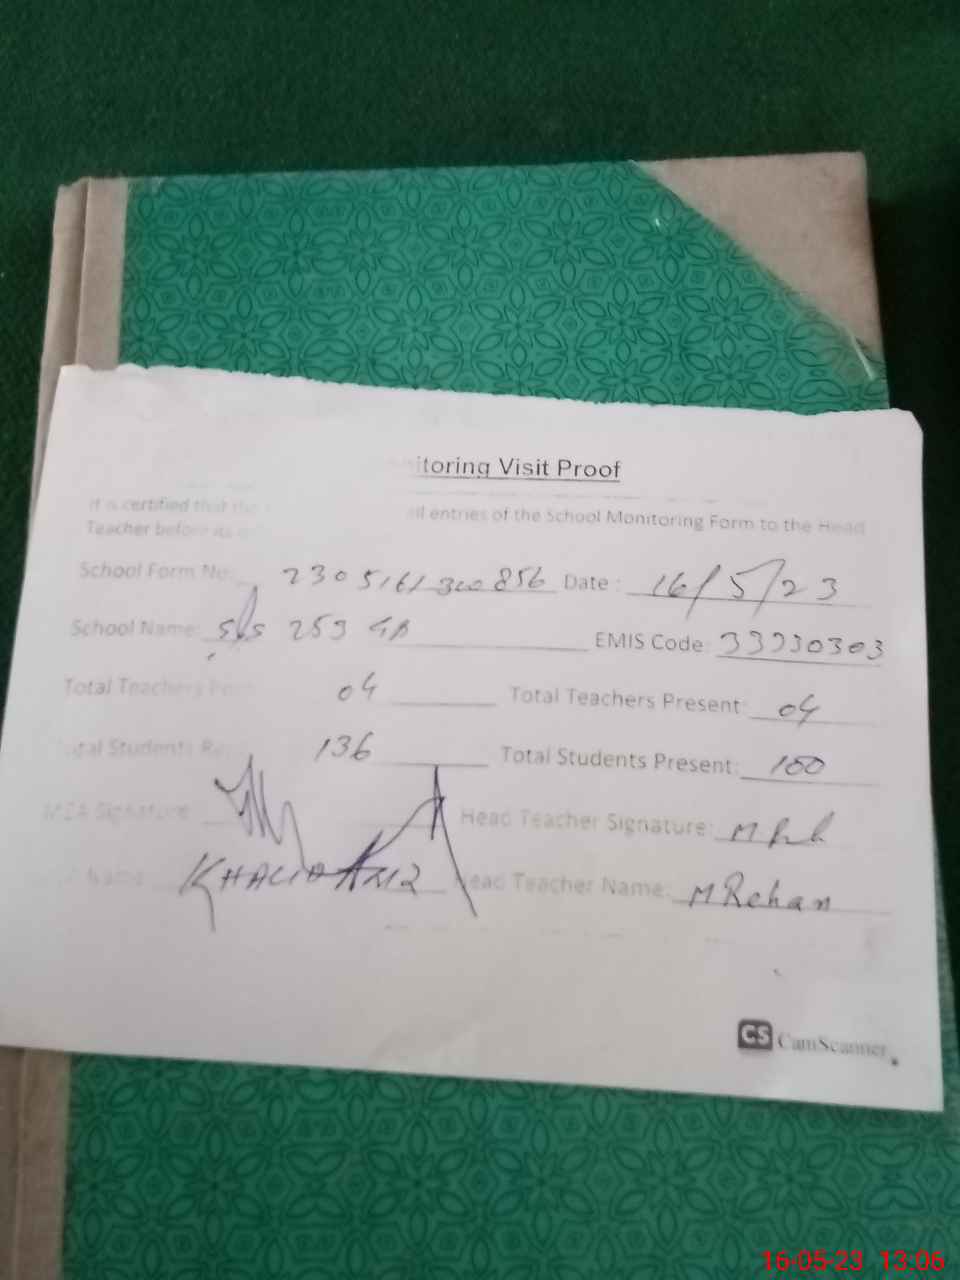 itoring Visit Proof
It is certified that the all entries of the School Monitoring Form to the Head
Teacher before its
School Form No: 2305161300856 Date: 16/5/23
School Name: 253 GB EMIS Code: 33330303
Total Teachers 04 Total Teachers Present: 04
Total Students 136 Total Students Present: 100
Signature Head Teacher Signature:
Name KHALID Head Teacher Name: M Rehan
CS CamScanner
16-05-23 13:06